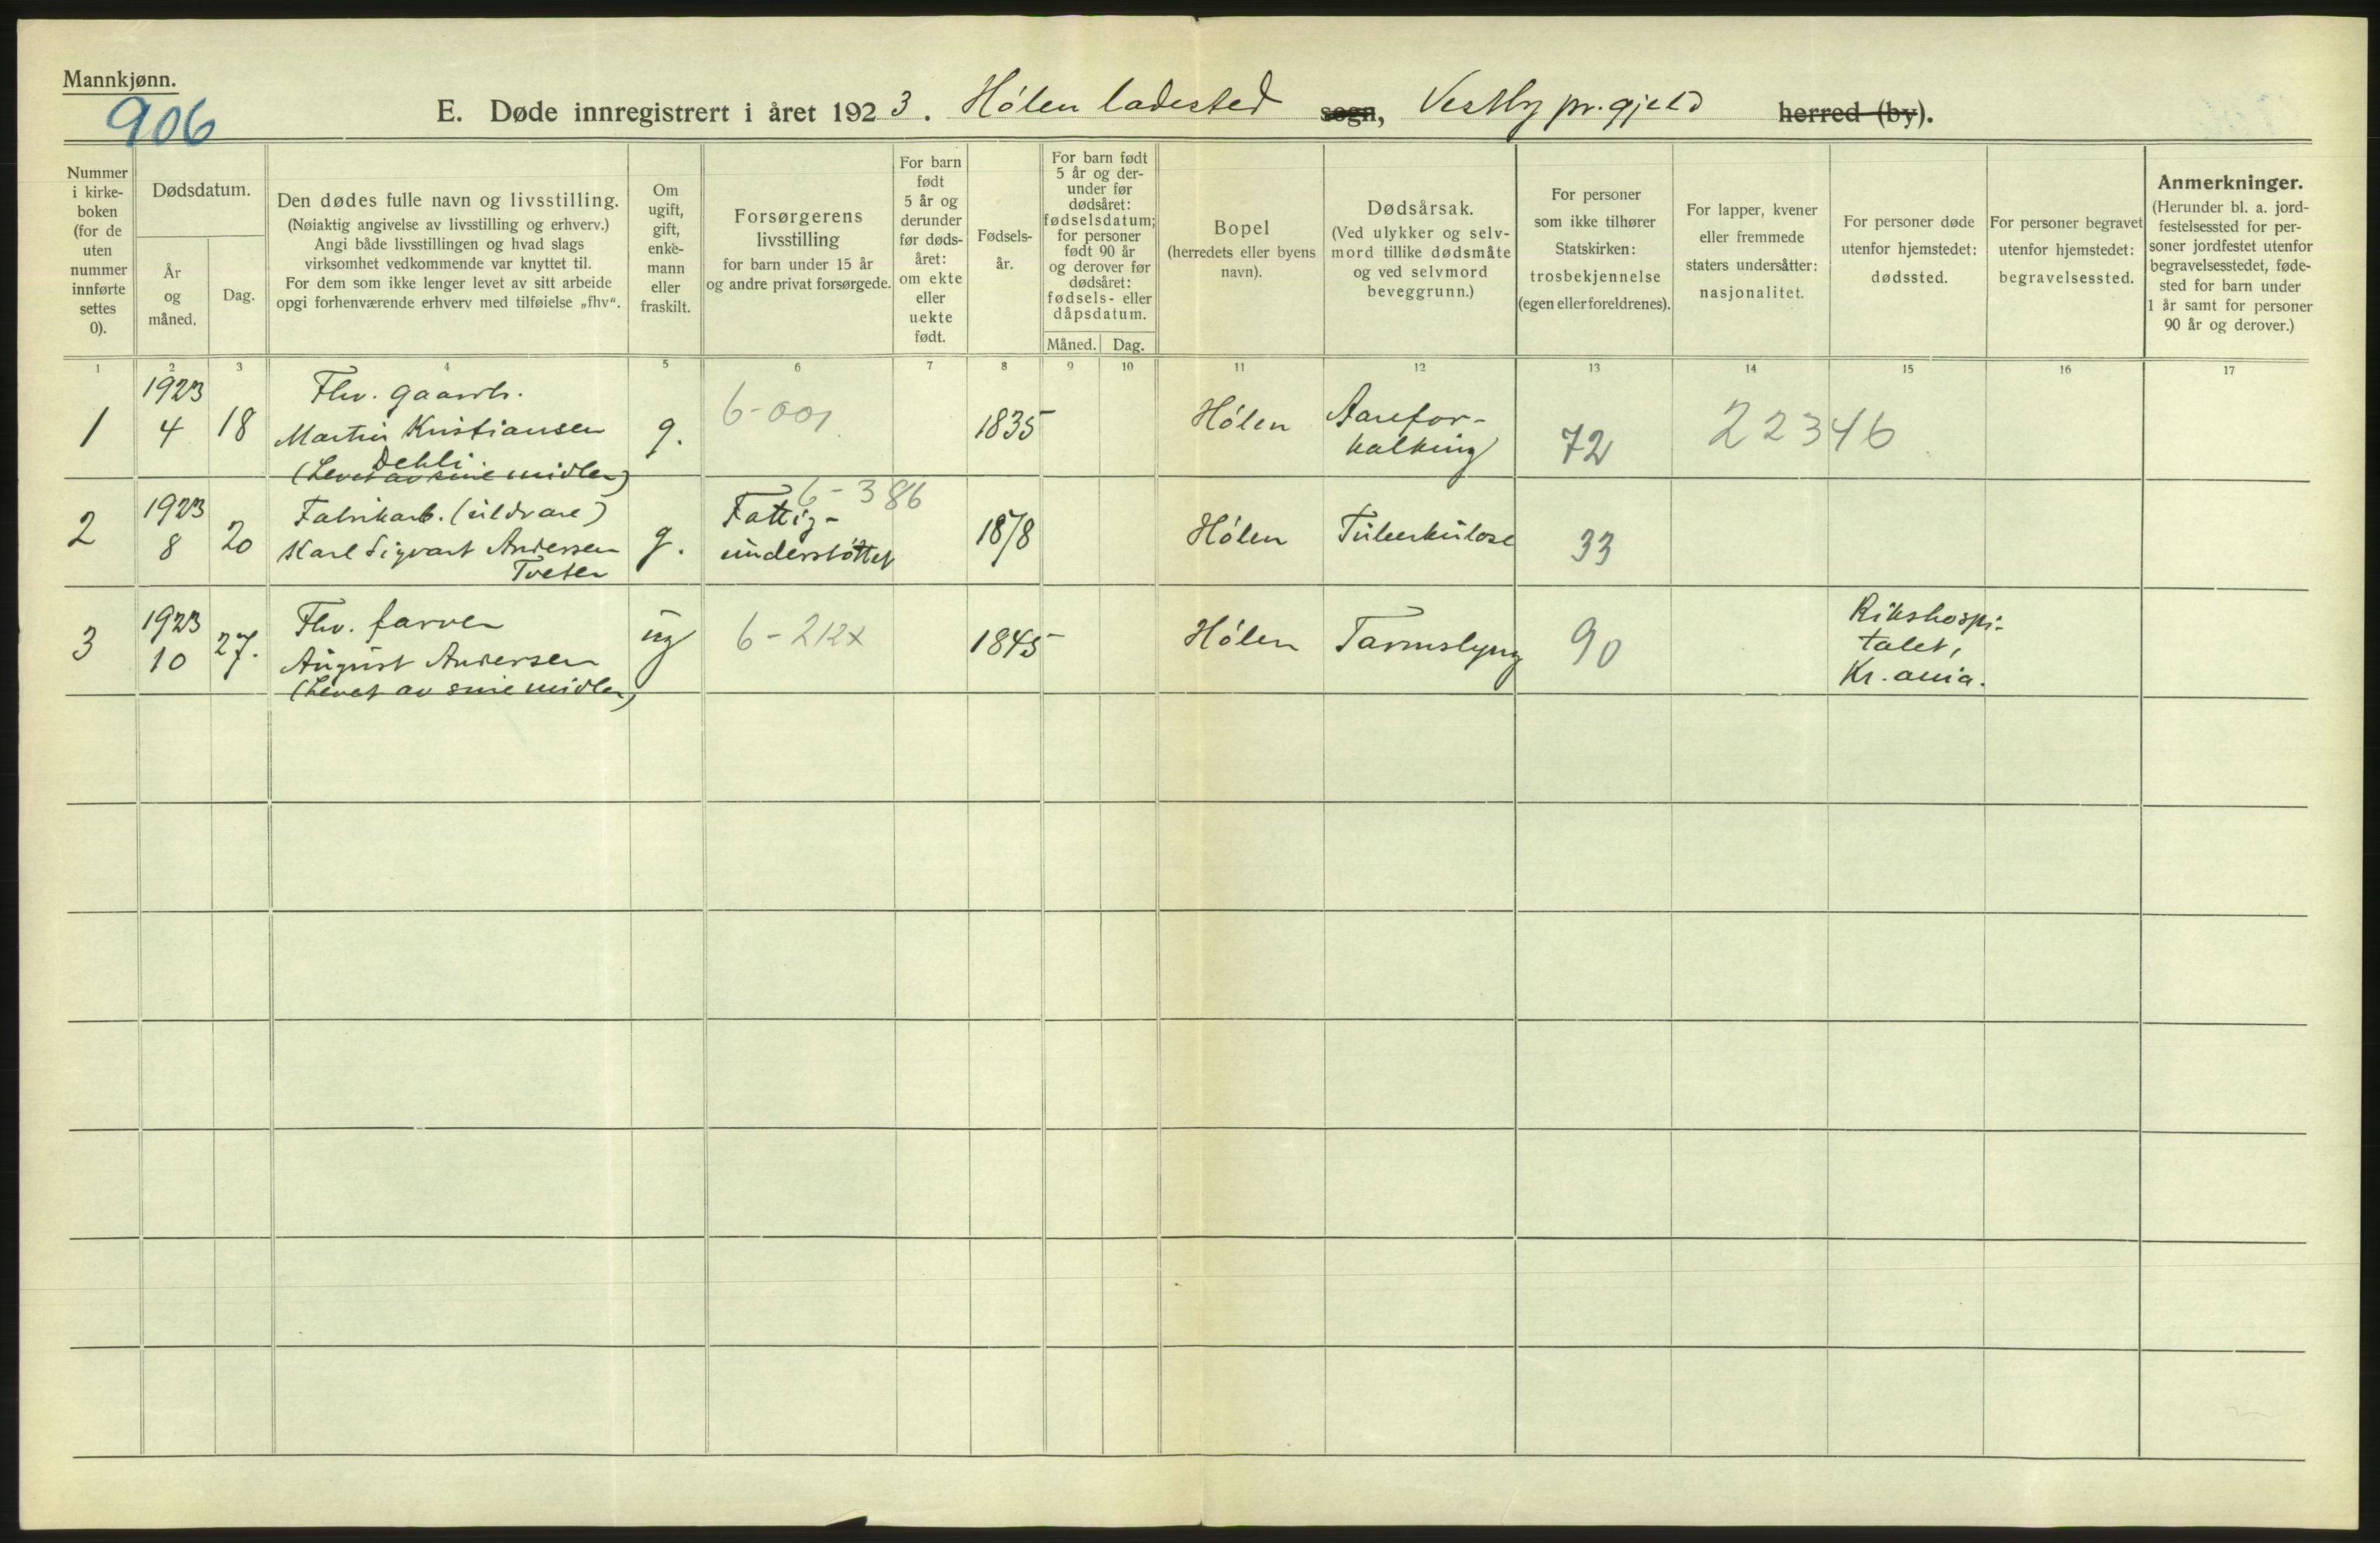 Mannkjønn.
906
E. Døde innregistrert i året 1923. Hølen ladested sogn, Vestby pr.gjeld herred (by).
Nummer
i kirke-
boken
(for de
uten
nummer
innførte
settes
0).
Dødsdatum.
År
og
måned.
Dag.
Den dødes fulle navn og livsstilling.
(Nøiaktig angivelse av livsstilling og erhverv.)
Angi både livsstillingen og hvad slags
virksomhet vedkommende var knyttet til.
For dem som ikke lenger levet av sitt arbeide
opgi forhenværende erhverv med tilføielse „fhv“.
Om
ugift,
gift,
enke-
mann
eller
fraskilt.
Forsørgerens
livsstilling
for barn under 15 år
og andre privat forsørgede.
For barn
født
5 år og
derunder
før døds-
året:
om ekte
eller
uekte
født.
Fødsels-
år.
For barn født
5 år og der-
under før
dødsåret:
fødselsdatum;
for personer
født 90 år
og derover før
dødsåret:
fødsels- eller
dåpsdatum.
Måned.
Dag.
Bopel
(herredets eller byens
navn).
Dødsårsak.
(Ved ulykker og selv-
mord tillike dødsmåte
og ved selvmord
beveggrunn.)
For personer
som ikke tilhører
Statskirken:
trosbekjennelse
(egen eller foreldrenes).
For lapper, kvener
eller fremmede
staters undersåtter:
nasjonalitet.
For personer døde
utenfor hjemstedet:
dødssted.
For personer begravet
utenfor hjemstedet:
begravelsessted.
Anmerkninger.
(Herunder bl. a. jord-
festelsessted for per-
soner jordfestet utenfor
begravelsesstedet, føde-
sted for barn under
1 år samt for personer
90 år og derover.)
1 2 3 4 5 6 7 8 9 10 11 12 13 14 15 16 17
1
1923
4
18
Fhv. gaardb.
Martin Kristiansen
Dehli
(Levet av sine midler)
g.
6-001
1835
Hølen
Aarefor-
kalkning
72
22346
2
1923
8
20
Fabrikarb. (uldvare)
Karl Sigvart Andersen
Tveter
g.
6-386
Fattig-
understøttet
1878
Hølen
Tuberkulose
33
3
1923
10
27.
Fhv. farver
August Andersen
(Levet av sine midler)
ug
6-212x
1845
Hølen
Tarmslyng
90
Rikshospi-
talet,
Kr.ania.